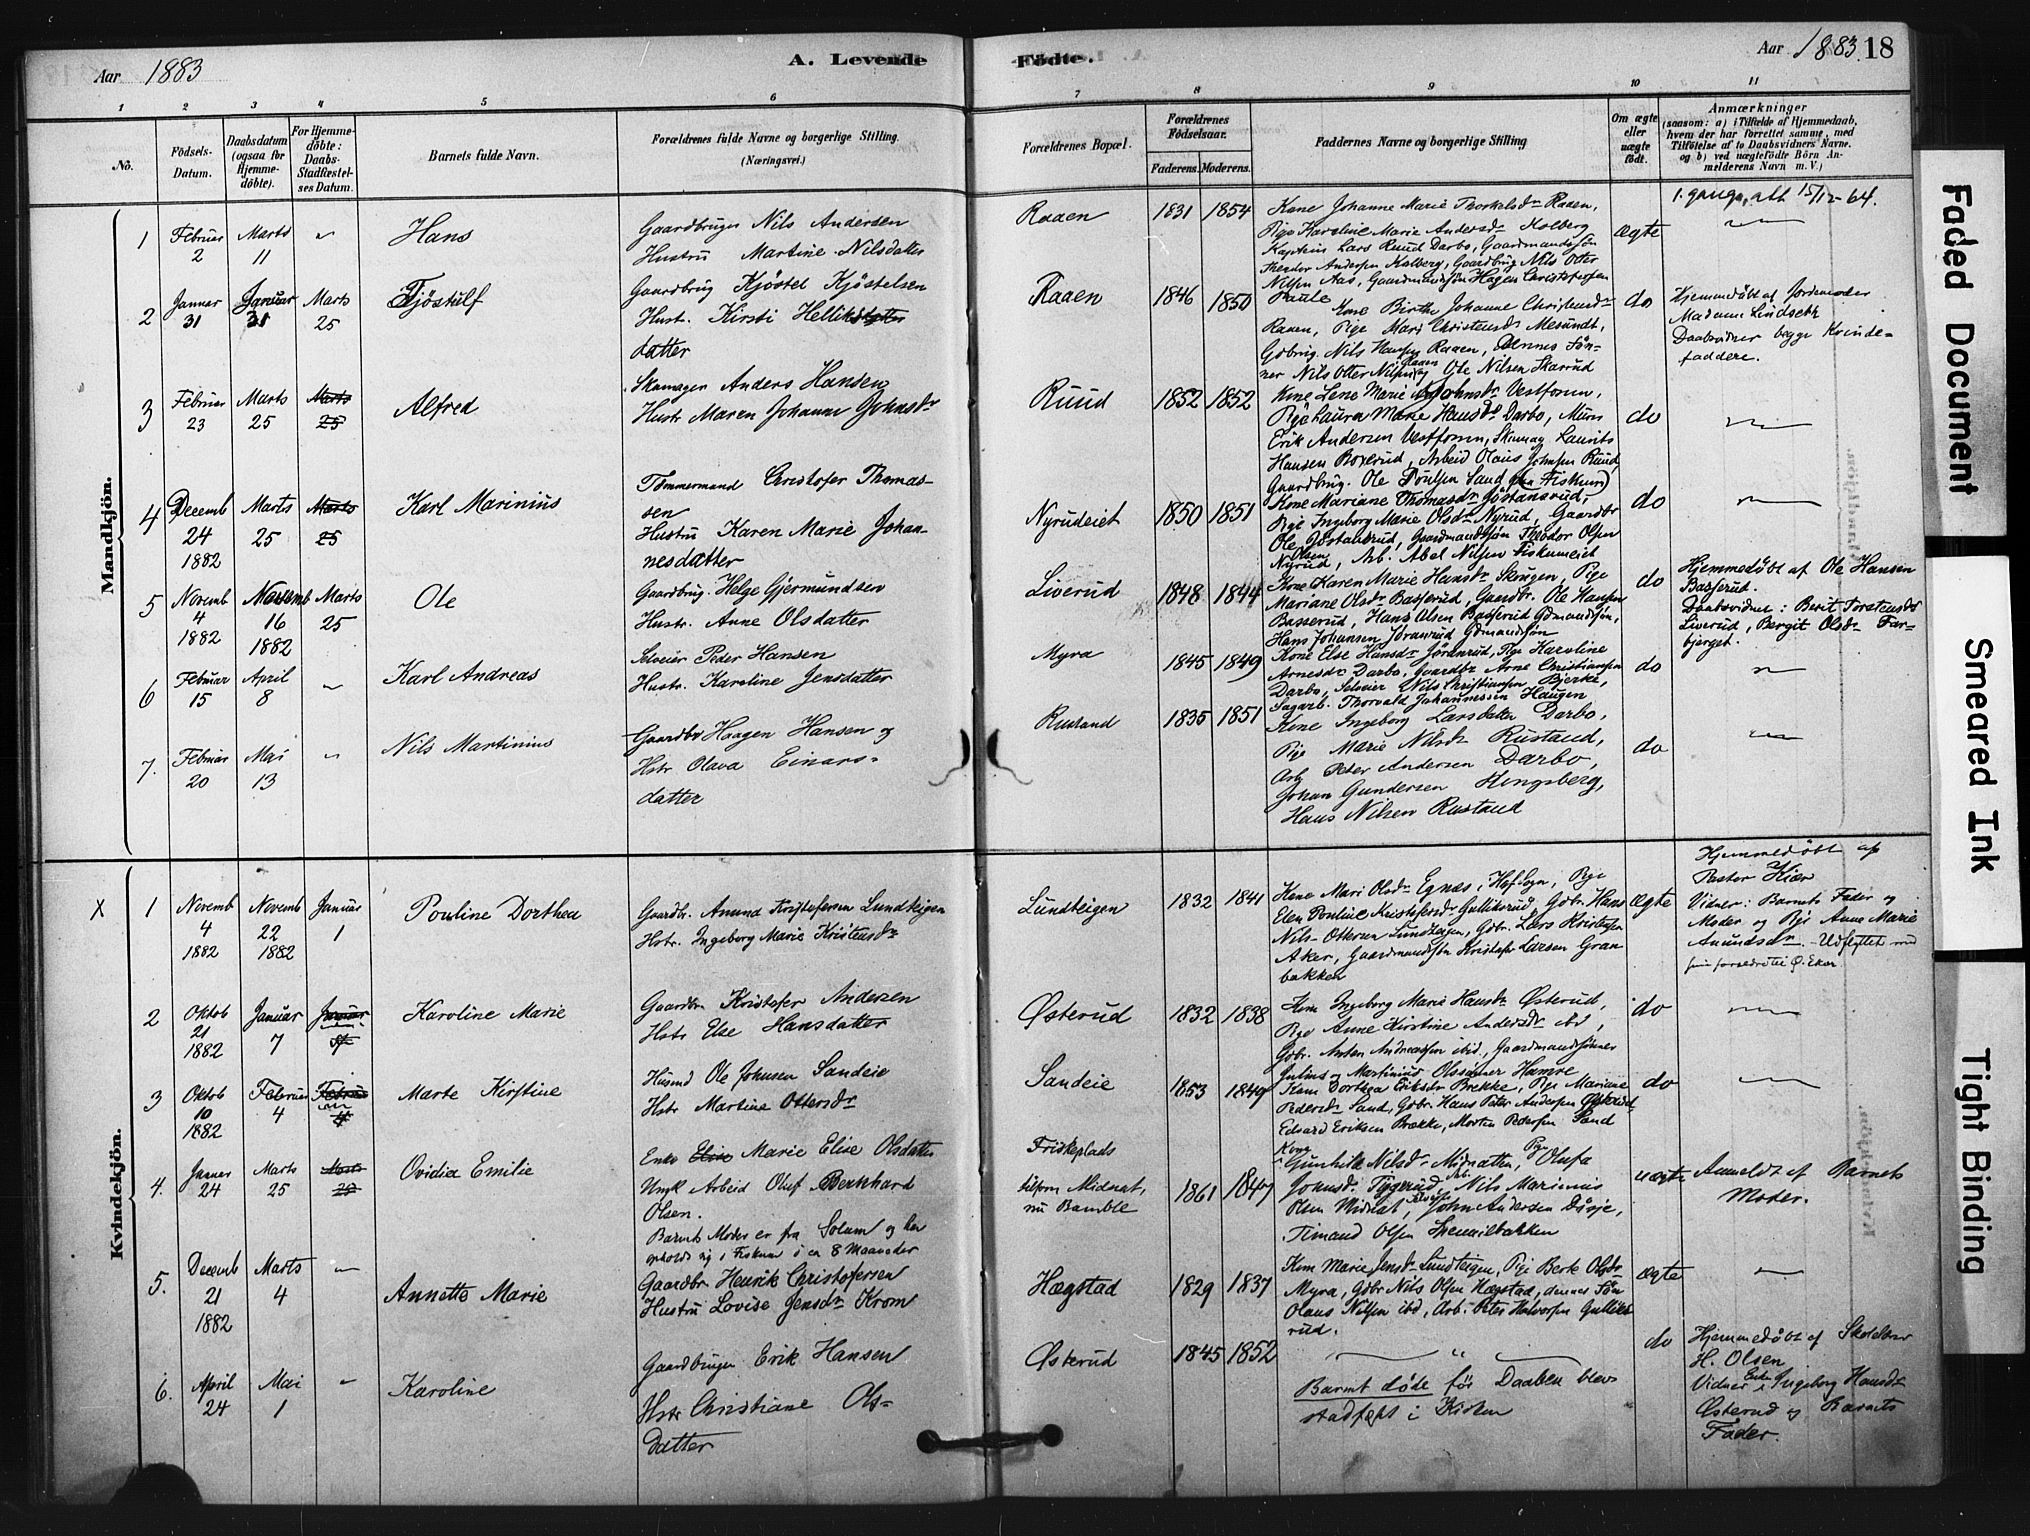 Aar 1883
A. Levende
Födte.
Aar 1883. 18
1 2 3 4 5 6
7 8 9 10 11
No.
Födsels-
Datum.
Daabsdatum
(ogsaa for
Hjemme-
döbte).
For Hjemme-
döbte:
Daabs-
Stadfæstel-
ses Datum.
Barnets fulde Navn.
Forældrenes fulde Navne og borgerlige Stilling.
(Næringsvei.)
Forældrenes Bopæl.
Forældrenes
Födselsaar.
Faderens. Moderens.
Faddernes Navne og borgerlige Stilling
Om ægte
eller
uægte
födt.
Anmærkninger
(saasom: a) i Tilfælde af Hjemmedaab,
hvem der har forrettet samme, med
Tilföielse af to Daabsvidners Navne.
og b) ved uægtefödte Börn An-
melderens Navn m. V.)
Mandkjön.
1
Februar
2
Marts
11
"
Hans
Gaardbruger Nils Andersen
Hustru Martine Nilsdatter
Raaen
1831 1854
Kone Johanne Marie Thorkelsdr Raaen,
Pige Karoline Marie Andersdr Kolberg
Kaptein Lars Ruud Darbo, Gaardmandssøn
Theodor Andersen Kolberg, Gaardbrug Nils Otter
Nilsen Aas, Gaardmandssøn Hagen Christofersen
ægte
1. gangs att 15/12-64.
2
Januar
31
Januar
31
Marts
25
Tjöstulf
Gaardbrug Kjøstel Kjøstelsen
Hust. Kirsti Helliks
datter
Raaen
1846 1850
Kone Birthe Johanne Christensdr
Raaen, Pige Mari Christensdr Mesundt,
Gdbrug. Nils Hansen Raaen, Dennes Søn-
ner Nils Otter Nilsen og Ole Nilsen Skarud
do
Hjemmedøbt af Jordemoder
Madame Lindseth
Daabsvidner begge Kvinde-
faddere.
3
Februar
23
Marts
25
Marts
25
Alfred
Skomager Anders Hansen
Hustr Maren Johanne Johnsdr
Ruud
1852 1852
Kone Lene Marie Johnsdr Vestfossen,
Pige Laura Marie Hansdr Darbo, Murer
Erik Andersen Vestfossen, Skomag Laurits
Hansen Boxerud, Arbeid Olaus Johnsen Ruud
Gaardbrug. Ole Poulsen Sand (fra Fiskum)
do
4
Decemb
24
1882
Marts
25
Marts
25
Karl Marinius
Tømmermand Christofer Thomas-
sen
Hustru Karen Marie Johan-
nesdatter
Nyrudeiet
1850 1851
Kone Mariane Thomasdr Gøstansrud,
Pige Ingeborg Marie Olsdr Nyrud, Gaardbr
Ole Gøstansrud, Gaardmandssøn Theodor Olsen
Nyrud, Arb. Abel Nilsen Fiskumeiet
do
5
Novemb
4
1882
Novemb
16
1882
Marts
25
Ole
Gaardbrug. Helge Gjermundsen
Hustr. Anne Olsdatter
Liverud
1848 1844
Kone Karen Marie Hansdr Skrugen, Pige
Mariane Olsdr Basserud, Gaardbr. Ole Hansen
Basserud, Hans Olsen Basserud Gdmandssøn,
Hans Johansen Jøranrud Gdmandssøn
do
Hjemmedøbt af Ole Hansen
Basserud.
Daabsvidner: Berit Torstensdr
Liverud, Bergit Olsdr Far-
bjerget.
6
Februar
15
April
8
"
Karl Andreas
Selveier Peder Hansen
Hustr. Karoline Jensdatter
Myra
1845 1849
Kone Else Hansdr Jøranrud, Pige Karoline
Arnesdr Darbo, Gaardbr Arne Christiansen
Darbo, Selveier Nils Christiansen Bjerke,
Sagarb. Thorvald Johannessen Haugen
do
7.
Februar
20
Mai
13
"
Nils Martinius
Gaardbr Haagen Hansen og
Hstr Olava Einars-
datter
Rustand
1835 1851
Kone Ingeborg Larsdatter Darbo,
Pige Marie Nilsdr Rustand,
Arb Peter Andersen Darbo,
Johan Gundersen Hengsberg,
Hans Nilsen Rustand
do
Kvindekjön.
X 1
Novemb
4
1882
Novemb
22
1882
Januar
1
Pouline Dorthea
Gaardbr. Anund Kristofersen Lundteigen
Hstr. Ingeborg Marie Kristensdr
Lundteigen
1832 1841
Kone Mari Olsdr Egnæs, i Hofs Sogn, Pige
Elen Pouline Kristofersdr Gulliksrud, Gdbr. Hans
Nils Ottersen Lundteigen, Gdbr. Lars Kristensen
Aker, Gaardmandssøn Kristofer Larsen Gran
bakken
ægte
Hjemmedøbt af
Pastor Kiær
Vidner: Barnets Fader og
Moder og Pige Anne Marie
Anundsdr. - Udflyttet med
sine forældre til Ø. Eker
2
Oktob
21
1882
Januar
7
Januar
7
Karoline Marie
Gaardbr Kristofer Andersen
Hstr Else Hansdatter
Østerud
1832 1838
Kone Ingeborg Marie Hansdr Østerud,
Pige Anne Kirstine Andersdr ibd,
Gdbr. Anten Andreassen ibid., Gaardmandssønner
Julius og Martinius Olssønner Hamre
do
3
Oktob
10
1882
Februar
4
Februar
4
Marte Kirstine
Husmd Ole Johnsen Sandeie
Hstr Martine Ottersdr
Sandeie
1853 1849
Kone Dorthea Eriksdr Brekke, Pige Mariane
Pedersdr Sand, Gdbr. Hans Peter Andersen Østerud,
Edvard Eriksen Brække, Morten Pedersen Sand
do
4.
Januar
24
Marts
25
Marts
25
Ovidia Emilie
Enke Elise Marie Elise Olsdatter
Ungk Arbeid Oluf Bernhard
Olsen.
Barnets Moder er fra Solum og har
opholdt sig i Fiskum i ca 8 Maaneder
Friskeplads
tilforn Midnat,
nu Bamble
1861 1847
Kone
Gunhild Nilsdr Midnatten, Pige Olufa
Johnsdr Tyrerud, Arb. Nils Marinius
Olsen Midnat, John Andersen Dørje,
Timand Olsen Spennilbakken
uægte
Anmeldt af Barnets
Moder.
5.
Decemb
21
1882
Marts
4
"
Annette Marie
Gaardbr Henrik Christofersen
Hustru Lovise Jensdr Krom
Hægstad
1829 1837
Kone Marie Jensdr Lundteigen, Pige Berte Olsdr
Myra, Gdbr Nils Olsen Hægstad, dennes Søn
Olaus Nilsen ibd, Arb. Otter Halvorsen Gulliks
rud.
ægte
6.
April
24
Mai
1
"
Karoline
Gaardbruger Erik Hansen
Hstr Christiane Ols-
datter
Østerud
1845 1852
"
Barnet døde før Daaben blev
stadfæst i Kirken
do
Hjemmedøbt af Skolelær
H. Olsen
Vidner Enke Ingeborg Hansdr
Østerud og Barnets
Fader.
Faded Document
Smeared Ink
Tight Binding